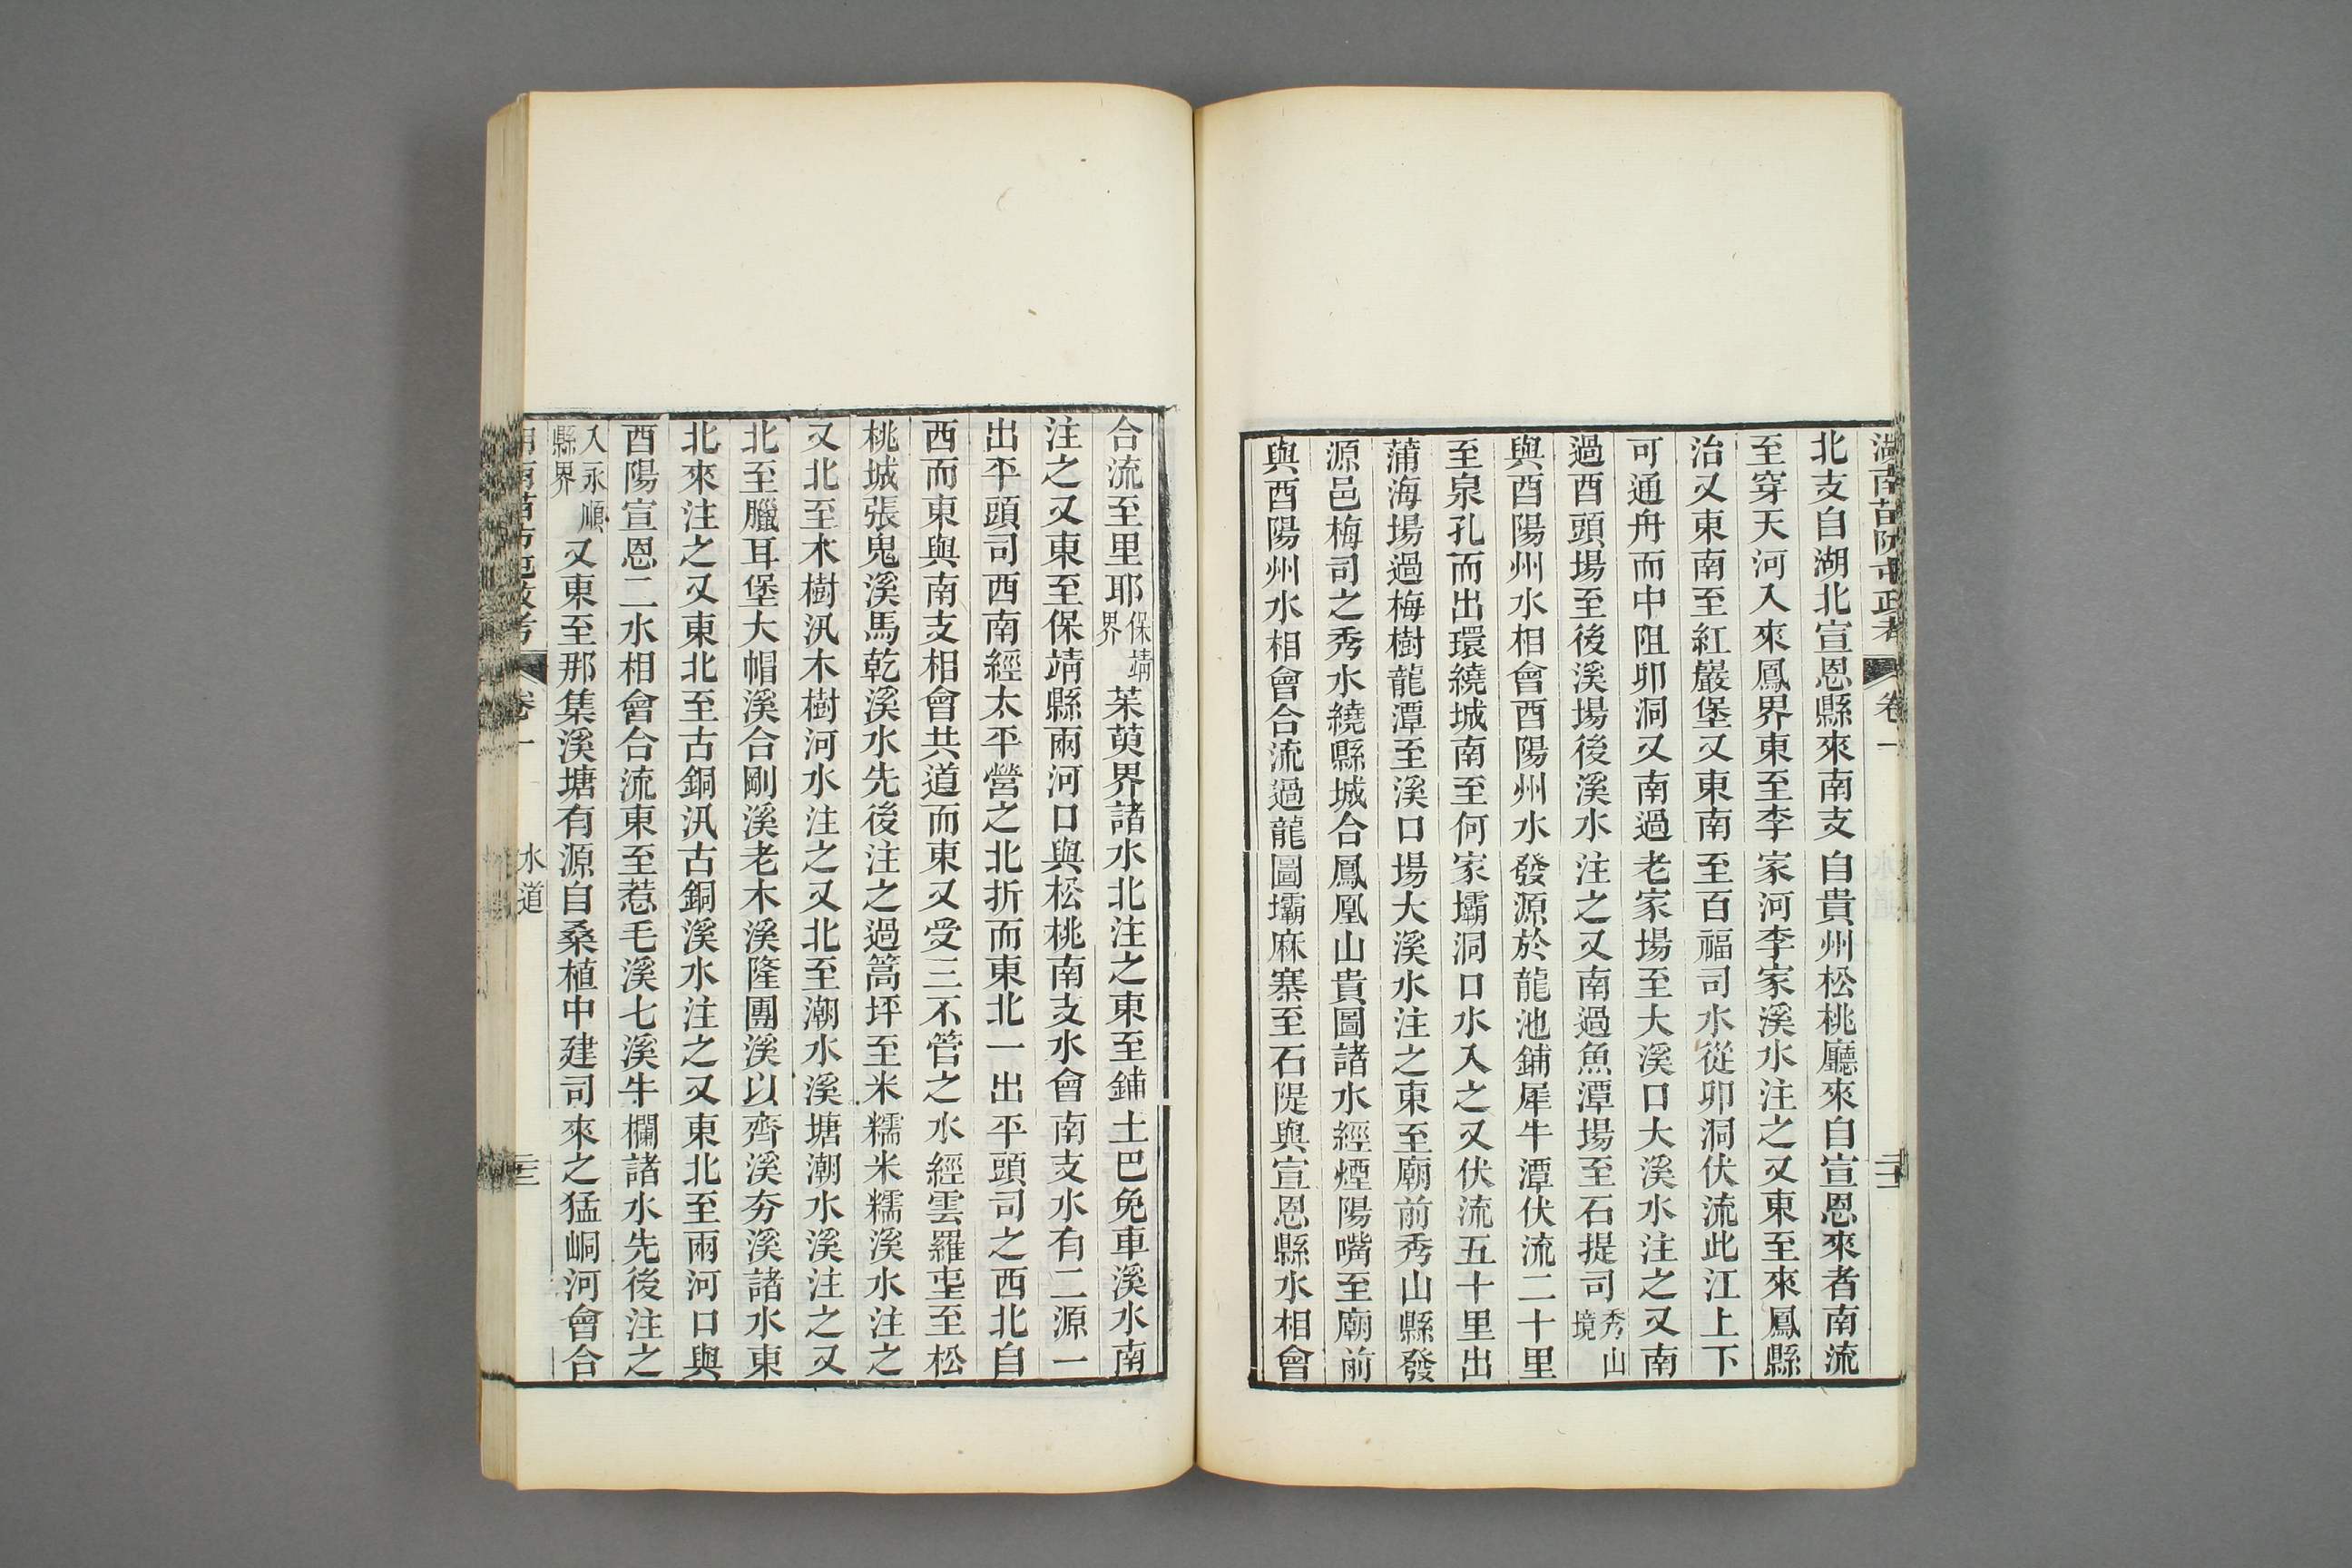 湖南苗防屯政考 卷一
北支自湖北宣恩縣來南支自貴州松桃廳來自宣恩來者南流
至穿天河入來鳳界東至李家河李家溪水注之又東至來鳳縣
治又東南至紅巖堡又東南至百福司水從卯洞伏流此江上下
可通舟而中阻卯洞又南過老家場至大溪口大溪水注之又南
過酉頭場至後溪場後溪水注之又南過魚潭場至石提司秀山境
與酉陽州水相會酉陽州水發源於龍池鋪犀牛潭伏流二十里
至泉孔而出環繞城南至何家壩洞口水入之又伏流五十里出
蒲海場過梅樹龍潭至溪口場大溪水注之東至廟前秀山縣發
源邑梅司之秀水繞縣城合鳳凰山貴圖諸水經煙陽嘴至廟前
與酉陽州水相會合流過龍圖壩麻寨至石隄與宣恩縣水相會
合流至里耶保靖界茱萸界諸水北注之東至鋪土巴免車溪水南
注之又東至保靖縣兩河口與松桃南支水會南支水有二源一
出平頭司西南經太平營之北折而東北一出平頭司之西北自
西而東與南支相會共道而東又受三不管之水經雲羅屯至松
桃城張鬼溪馬乾溪水先後注之過篙坪至米糯米糯溪水注之
又北至木樹汛木樹河水注之又北至潮水溪塘潮水溪注之又
北至臘耳堡大帽溪合剛溪老木溪隆團溪以齊溪夯溪諸水東
北來注之又東北至古銅汛古銅溪水注之又東北至兩河口與
酉陽宣恩二水相會合流東至惹毛溪七溪牛欄諸水先後注之
入永順縣界又東至那集溪塘有源自桑植中建司來之猛峒河會合
湖南苗防屯政考 卷一 水道 三